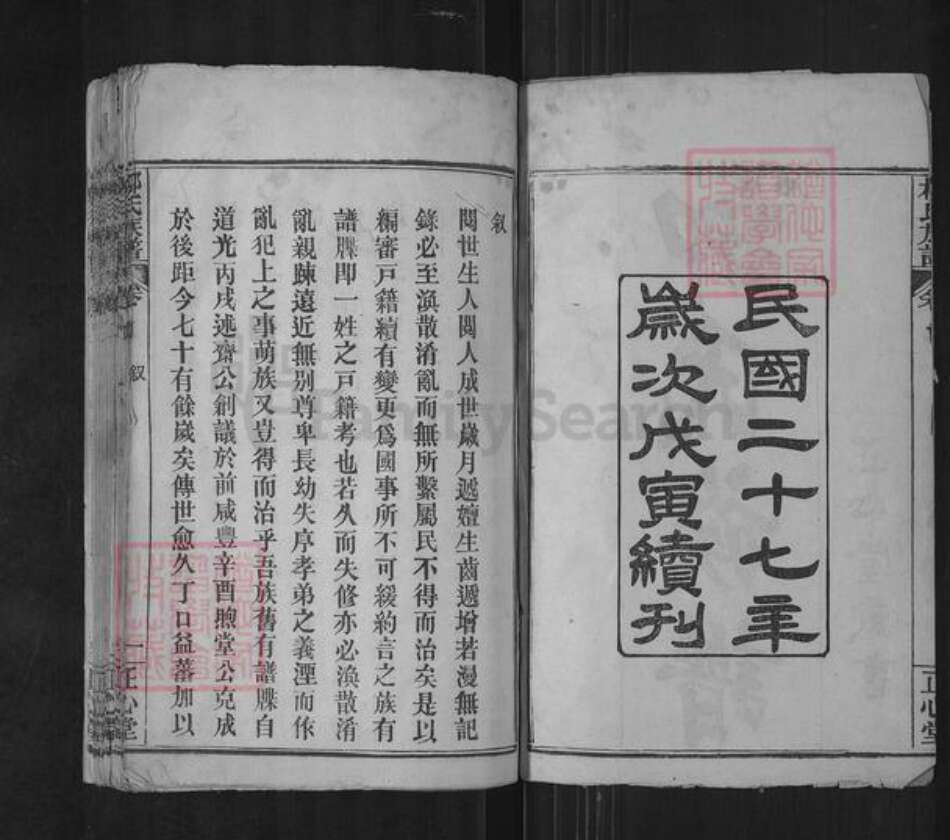 民國二十七年
歲次戊寅續刊
正心堂
敘
閱世生人閱人成世嵗月遞嬗生齒遞增若漫無記
錄必至渙散淆亂而無所繫屬民不得而治矣是以
編審戸籍續有變更爲國事所不可緩約言之族有
譜牒即一姓之戸籍考也若久而失修亦必渙散淆
亂親踈遠近無别尊卑長幼失序孝弟之義湮而作
亂犯上之事萌族又豈得而治乎吾族舊有譜牒自
道光丙戌述齋公創議於前咸豐辛酉煦堂公克成
於後距今七十有餘嵗矣傳世愈久丁口益蕃加以
氏族譜
敘
一
正心堂
FamilySearch